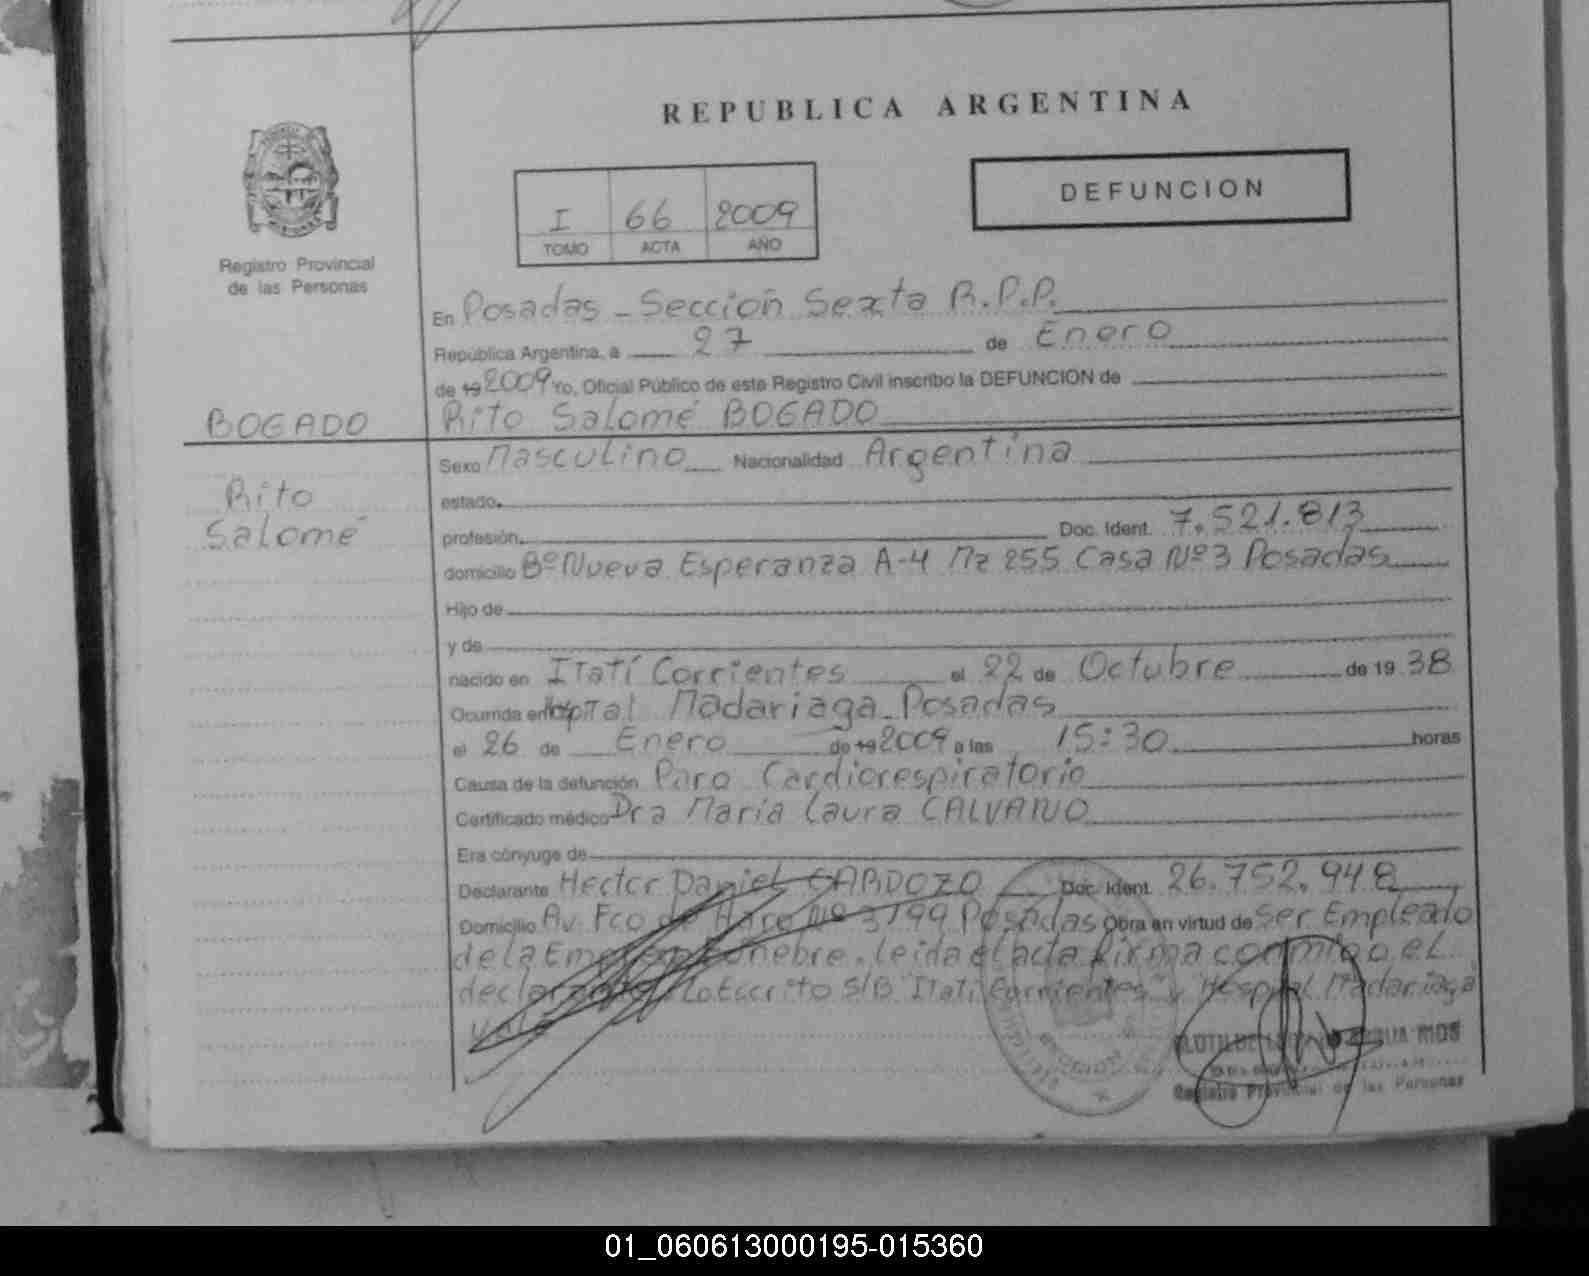 REPUBLICA ARGENTINA
DEFUNCION
I 66 2009
TOMO ACTA AÑO
Registro Provincial
de las Personas
En Posadas - Sección Sexta R.P.P.
República Argentina, a 27 de Enero
de 19 2009 Yo, Oficial Público de este Registro Civil inscribo la DEFUNCION de
BOGADO
Rito Salomé BOGADO
Rito
Salomé
Sexo Masculino Nacionalidad Argentina
estado
profesión Doc. Ident. 7.521.813
domicilio Bº Nueva Esperanza A-4 Mz 255 Casa Nº 3 Posadas
Hijo de
y de
nacido en Itatí Corrientes el 22 de Octubre de 19 38
Ocurrida en Hospital Madariaga Posadas
el 26 de Enero de 19 2009 a las 15:30 horas
Causa de la defunción Paro Cardiorespiratorio
Certificado médico Dra María Laura CALVANO
Era cónyuge de
Declarante Hector Daniel CARDOZO Doc. Ident. 26.752.948
Domicilio Av. Fco de Haro Nº 3799 Posadas Obra en virtud de Ser Empleado
de la Empresa Funebre. leida el acta firma conmigo el
declarante. Lo Escrito S/B "Itatí Corrientes" y "Hospital Madariaga
vale
CLOTILDE RIOS
Registro Provincial de las Personas
01_060613000195-015360